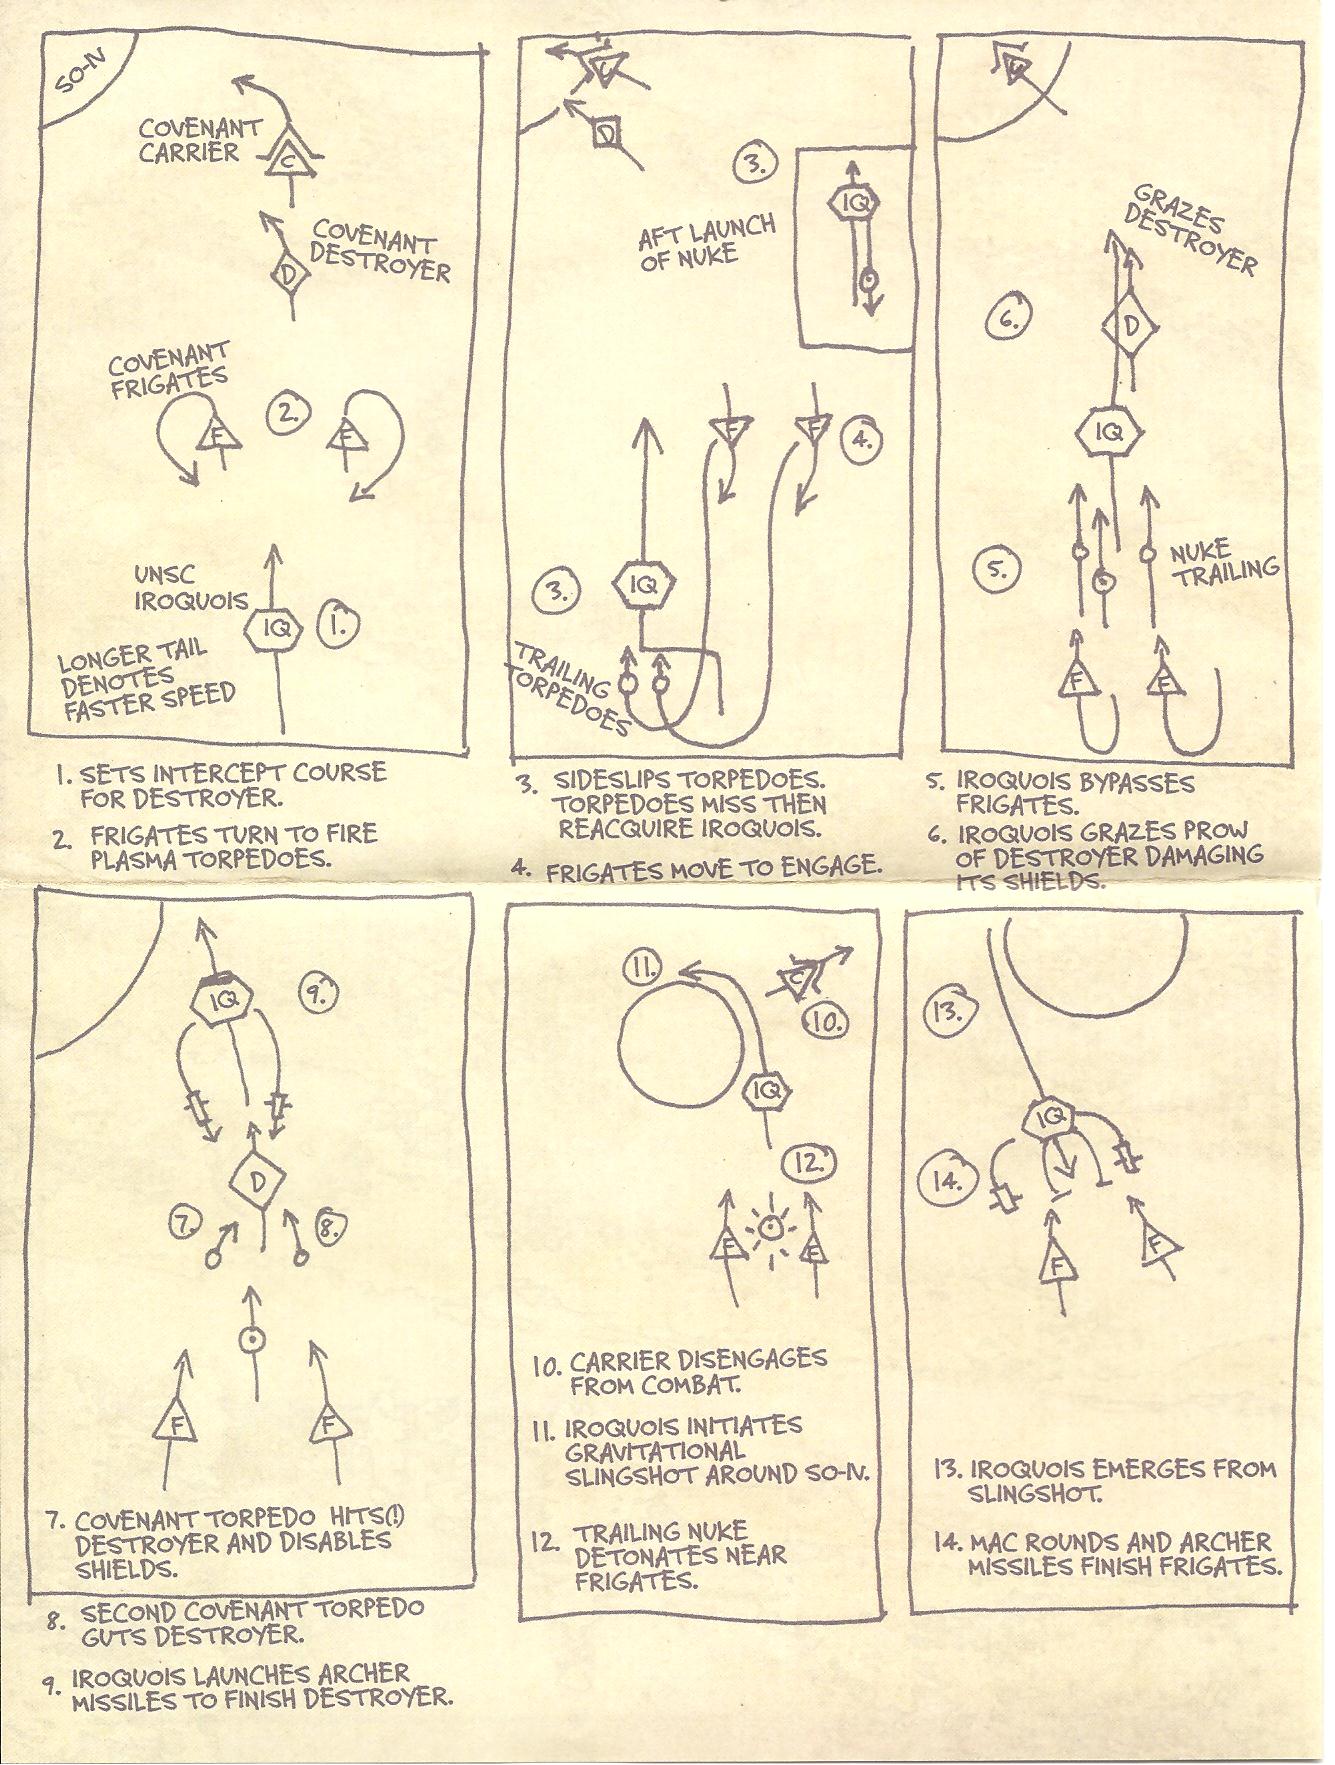 SO-IV
COVENANT
CARRIER
C
COVENANT
DESTROYER
D
COVENANT
FRIGATES
F
2.
F
UNSC
IROQUOIS
IQ
1.
LONGER TAIL
DENOTES
FASTER SPEED
1. SETS INTERCEPT COURSE
FOR DESTROYER.
2. FRIGATES TURN TO FIRE
PLASMA TORPEDOES.
C
D
3.
AFT LAUNCH
OF NUKE
IQ
F
F
4.
3.
IQ
TRAILING
TORPEDOES
3. SIDESLIPS TORPEDOES.
TORPEDOES MISS THEN
REACQUIRE IROQUOIS.
4. FRIGATES MOVE TO ENGAGE.
C
GRAZES
DESTROYER
6.
D
IQ
5.
NUKE
TRAILING
F
F
5. IROQUOIS BYPASSES
FRIGATES.
6. IROQUOIS GRAZES PROW
OF DESTROYER DAMAGING
ITS SHIELDS.
IQ
9.
D
7.
8.
F
F
7. COVENANT TORPEDO HITS(!)
DESTROYER AND DISABLES
SHIELDS.
8. SECOND COVENANT TORPEDO
GUTS DESTROYER.
9. IROQUOIS LAUNCHES ARCHER
MISSILES TO FINISH DESTROYER.
11.
C
10.
IQ
12.
F
F
10. CARRIER DISENGAGES
FROM COMBAT.
11. IROQUOIS INITIATES
GRAVITATIONAL
SLINGSHOT AROUND SO-IV.
12. TRAILING NUKE
DETONATES NEAR
FRIGATES.
13.
IQ
14.
F
F
13. IROQUOIS EMERGES FROM
SLINGSHOT.
14. MAC ROUNDS AND ARCHER
MISSILES FINISH FRIGATES.